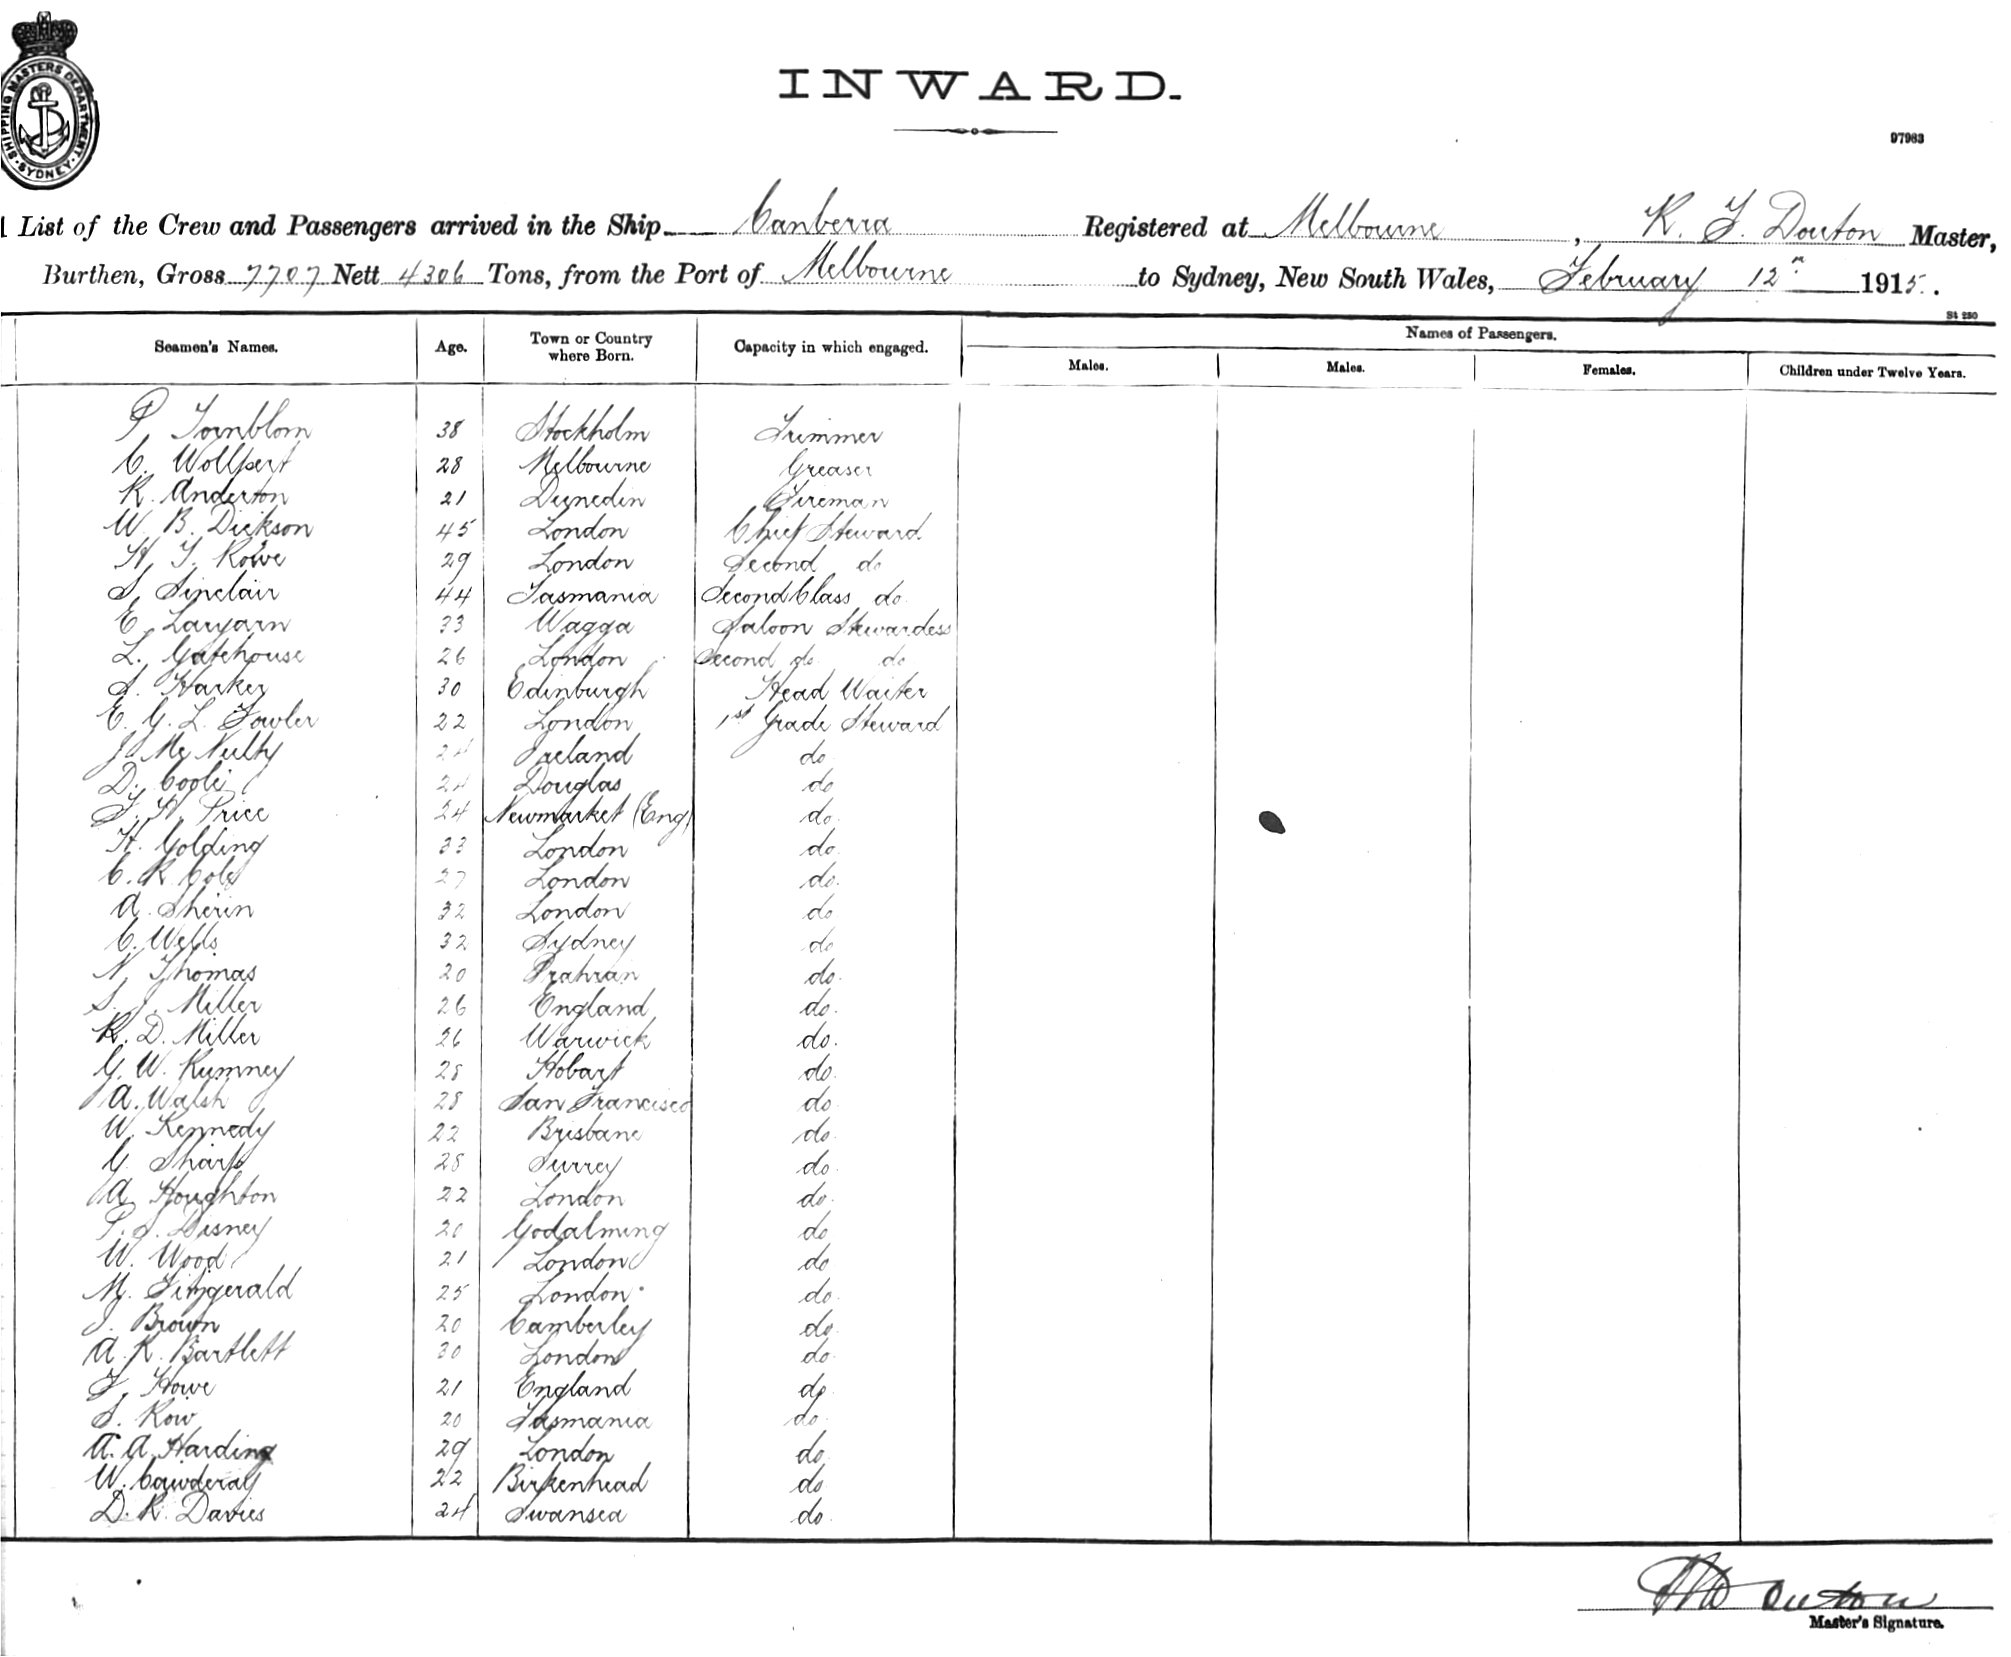 SHIPPING MASTERS DEPARTMENT
SYDNEY
INWARD.
97983
List of the Crew and Passengers arrived in the Ship Canberra Registered at Melbourne, R. J. Douton Master,
Burthen, Gross 7707 Nett 4306 Tons, from the Port of Melbourne to Sydney, New South Wales, February 12th 1915.
St 230
Seamen's Names. Age. Town or Country where Born. Capacity in which engaged. Names of Passengers.
Males. Males. Females. Children under Twelve Years.
P. Tornblom 38 Stockholm Trimmer
C. Wollpert 28 Melbourne Greaser
R. Anderton 21 Dunedin Fireman
W. B. Dickson 45 London Chief Steward
H. J. Rowe 29 London Second do
S. Sinclair 44 Tasmania Second Class do.
E. 33 Wagga Saloon Stewardess
L. Gatehouse 26 London Second do do
S. Harker 30 Edinburgh Head Waiter
E. G. L. Fowler 22 London 1st Grade Steward
J. McNulty 24 Ireland do
D. 24 Douglas do
F. H. Price 24 Newmarket (Eng) do.
H. Golding 33 London do.
C. R. Cole 27 London do.
A. Sherin 32 London do
C. Wells 32 Sydney do
N. Thomas 20 Prahran do.
S. J. Miller 26 England do.
R. D. Miller 26 Warwick do.
G. W. Rumney 28 Hobart do.
A. Walsh 28 San Francisco do.
W. Kennedy 22 Brisbane do.
G. Sharp 28 Surrey do.
A. Houghton 22 London do.
P. J. Disney 20 Godalming do
W. Wood 21 London do
M. Fitzgerald 25 London do.
J. Brown 20 Camberley do.
A. R. Bartlett 30 London do.
F. Howe 21 England do.
S. Row 20 Tasmania do.
A. A. Harding 29 London do
W. Cowderay 22 Birkenhead do
D. R. Davies 24 Swansea do.
Master's Signature.